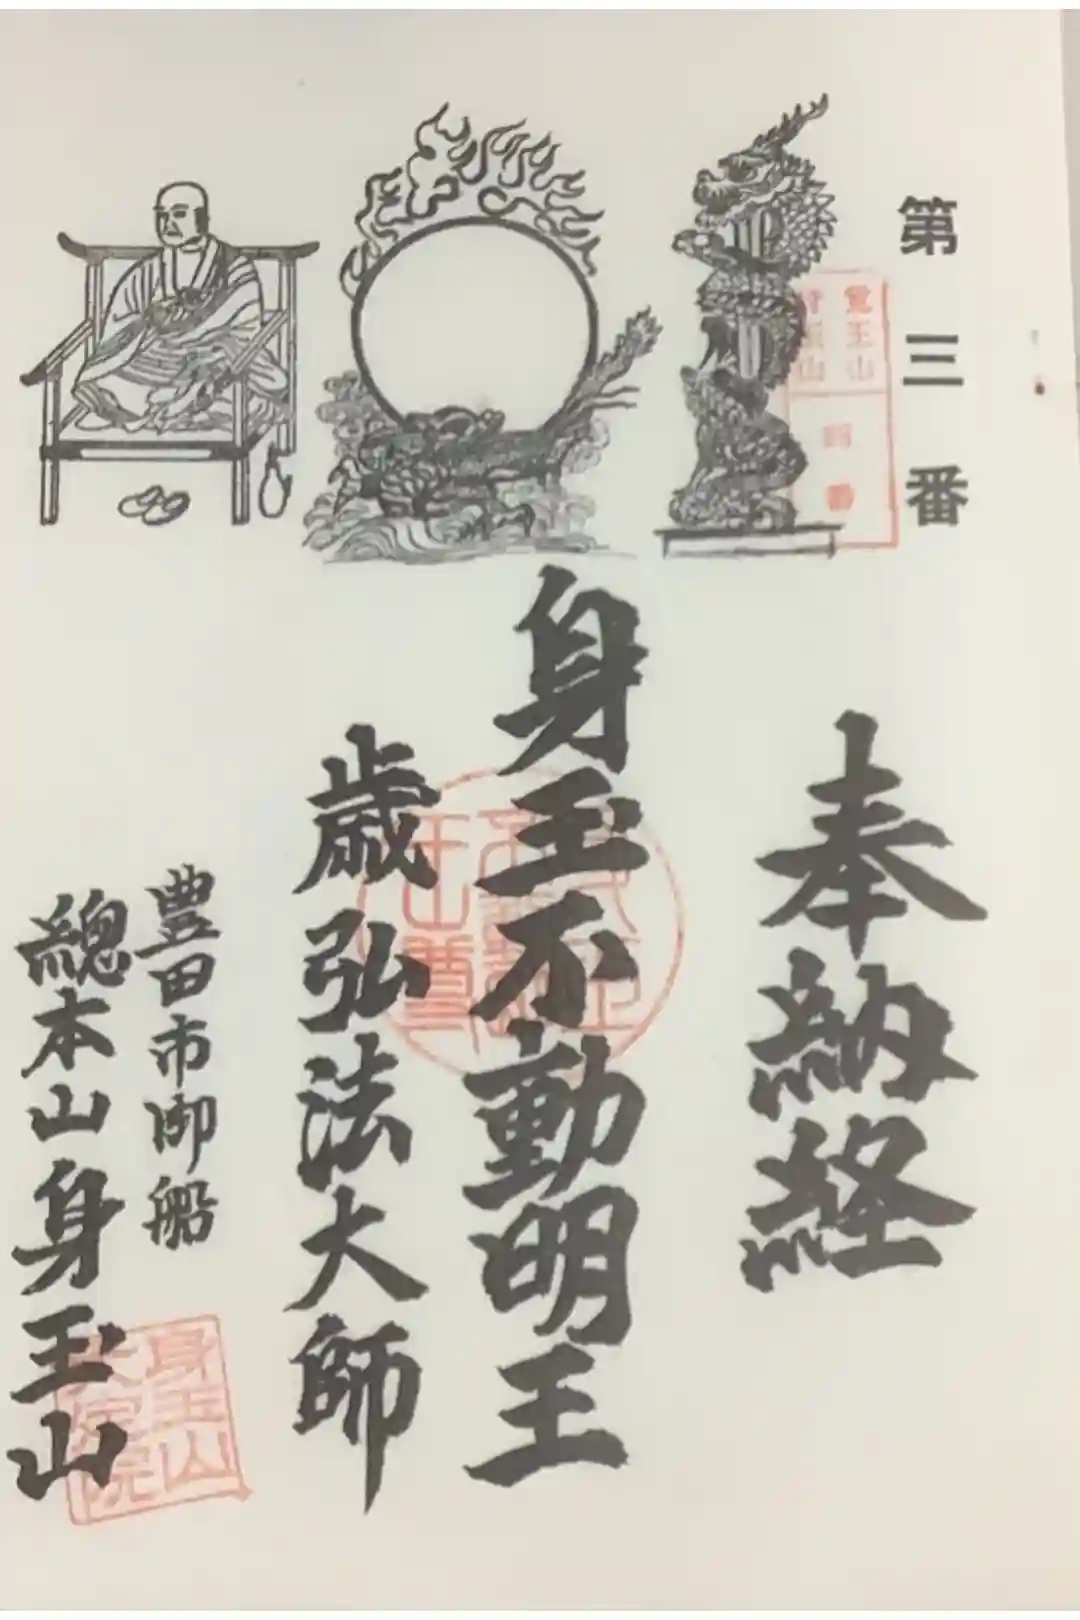 第三番
奉納経
身玉不動明王
歳弘法大師
豊田市御船
總本山身玉山
身玉山